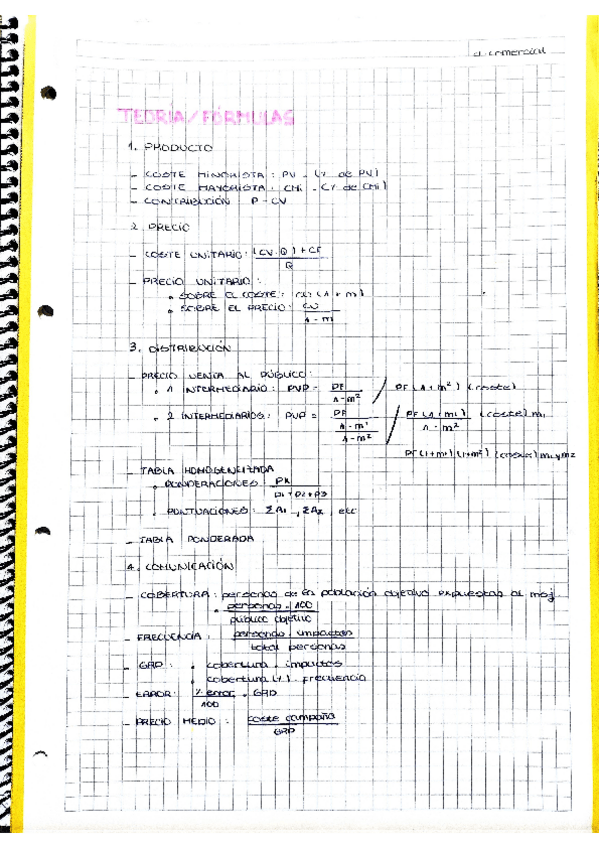 D. COMERCIAL
TEORÍA/FÓRMULAS
1. PRODUCTO
- COSTE MINORISTA: PV - (% de PV)
- COSTE MAYORISTA: CMi - (% de CMi)
- CONTRIBUCIÓN P - CV
2. PRECIO
- COSTE UNITARIO: (CV·Q)+CF
Q
- PRECIO UNITARIO:
• SOBRE EL COSTE: (1 + m)
• SOBRE EL PRECIO: CU
1 - m
3. DISTRIBUCIÓN
- PRECIO VENTA AL PÚBLICO:
• 1 INTERMEDIARIO: PVP = PF / PF (1 + m²) (coste)
1 - m²
• 2 INTERMEDIARIOS: PVP = PF / PF (1 + m1) (coste) m1
1 - m¹ 1 - m²
1 - m²
PF (1+m¹) (1+m²) (coste) m1 y m2
- TABLA HOMOGENEIZADA
• PONDERACIONES: PK
p1+p2+p3
• PUNTUACIONES: ΣA1, ΣA2, etc
- TABLA PONDERADA
4. COMUNICACIÓN
- COBERTURA: personas de en población objetivo expuestas al msj.
• personas · 100
público objetivo
- FRECUENCIA: personas · impactos
total personas
- GRP: • cobertura · impactos
• cobertura (%) · frecuencia
- ERROR: % error · GRP
100
- PRECIO MEDIO: coste campaña
GRP